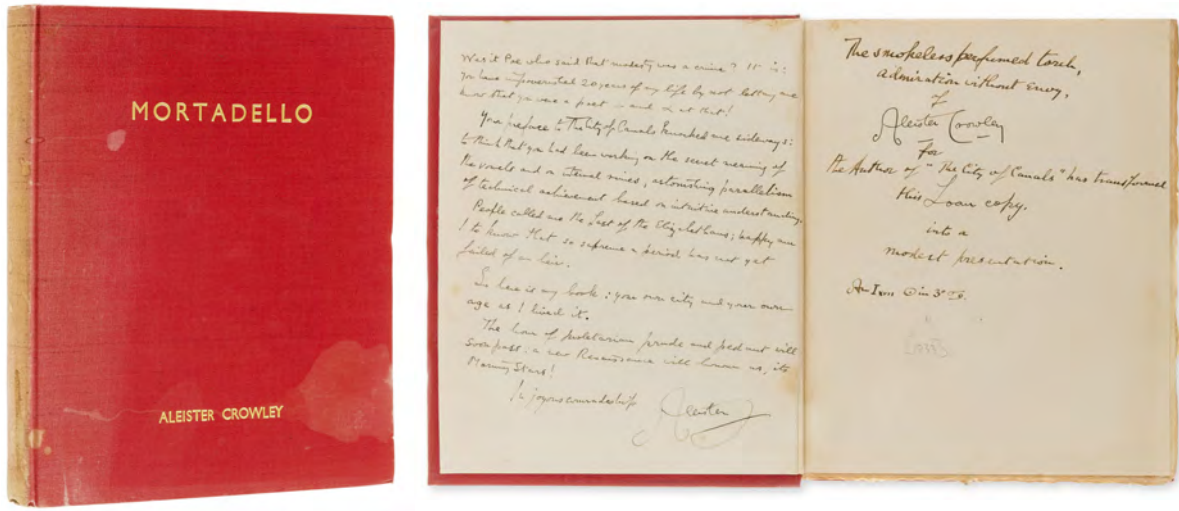 MORTADELLO
ALEISTER CROWLEY
Was it Poe who said that modesty was a crime? It is:
you have impoverished 20 years of my life by not letting me
know that you were a poet — and at that!
Your preface to The City of Canals knocked me sideways:
to think that you had been working on the secret meaning of
the vowels and on internal rimes, astonishing parallelism
of technical achievement based on intuitive understanding.
People called me the Last of the Elizabethans; happy am
I to know that so supreme a period has not yet
failed of an heir.
So here is my book: your own city and your own
age as I lived it.
The hour of proletarian prude and pedant will
soon pass: a new Renaissance will honour us, its
Morning Stars!
In joyous comradeship
Aleister
The smokeless perfumed torch,
admiration without envy,
of
Aleister Crowley
for
the Author of "The City of Canals" has transformed
this Loan copy.
into a
modest presentation.
An Ixviii ☉ in 3°